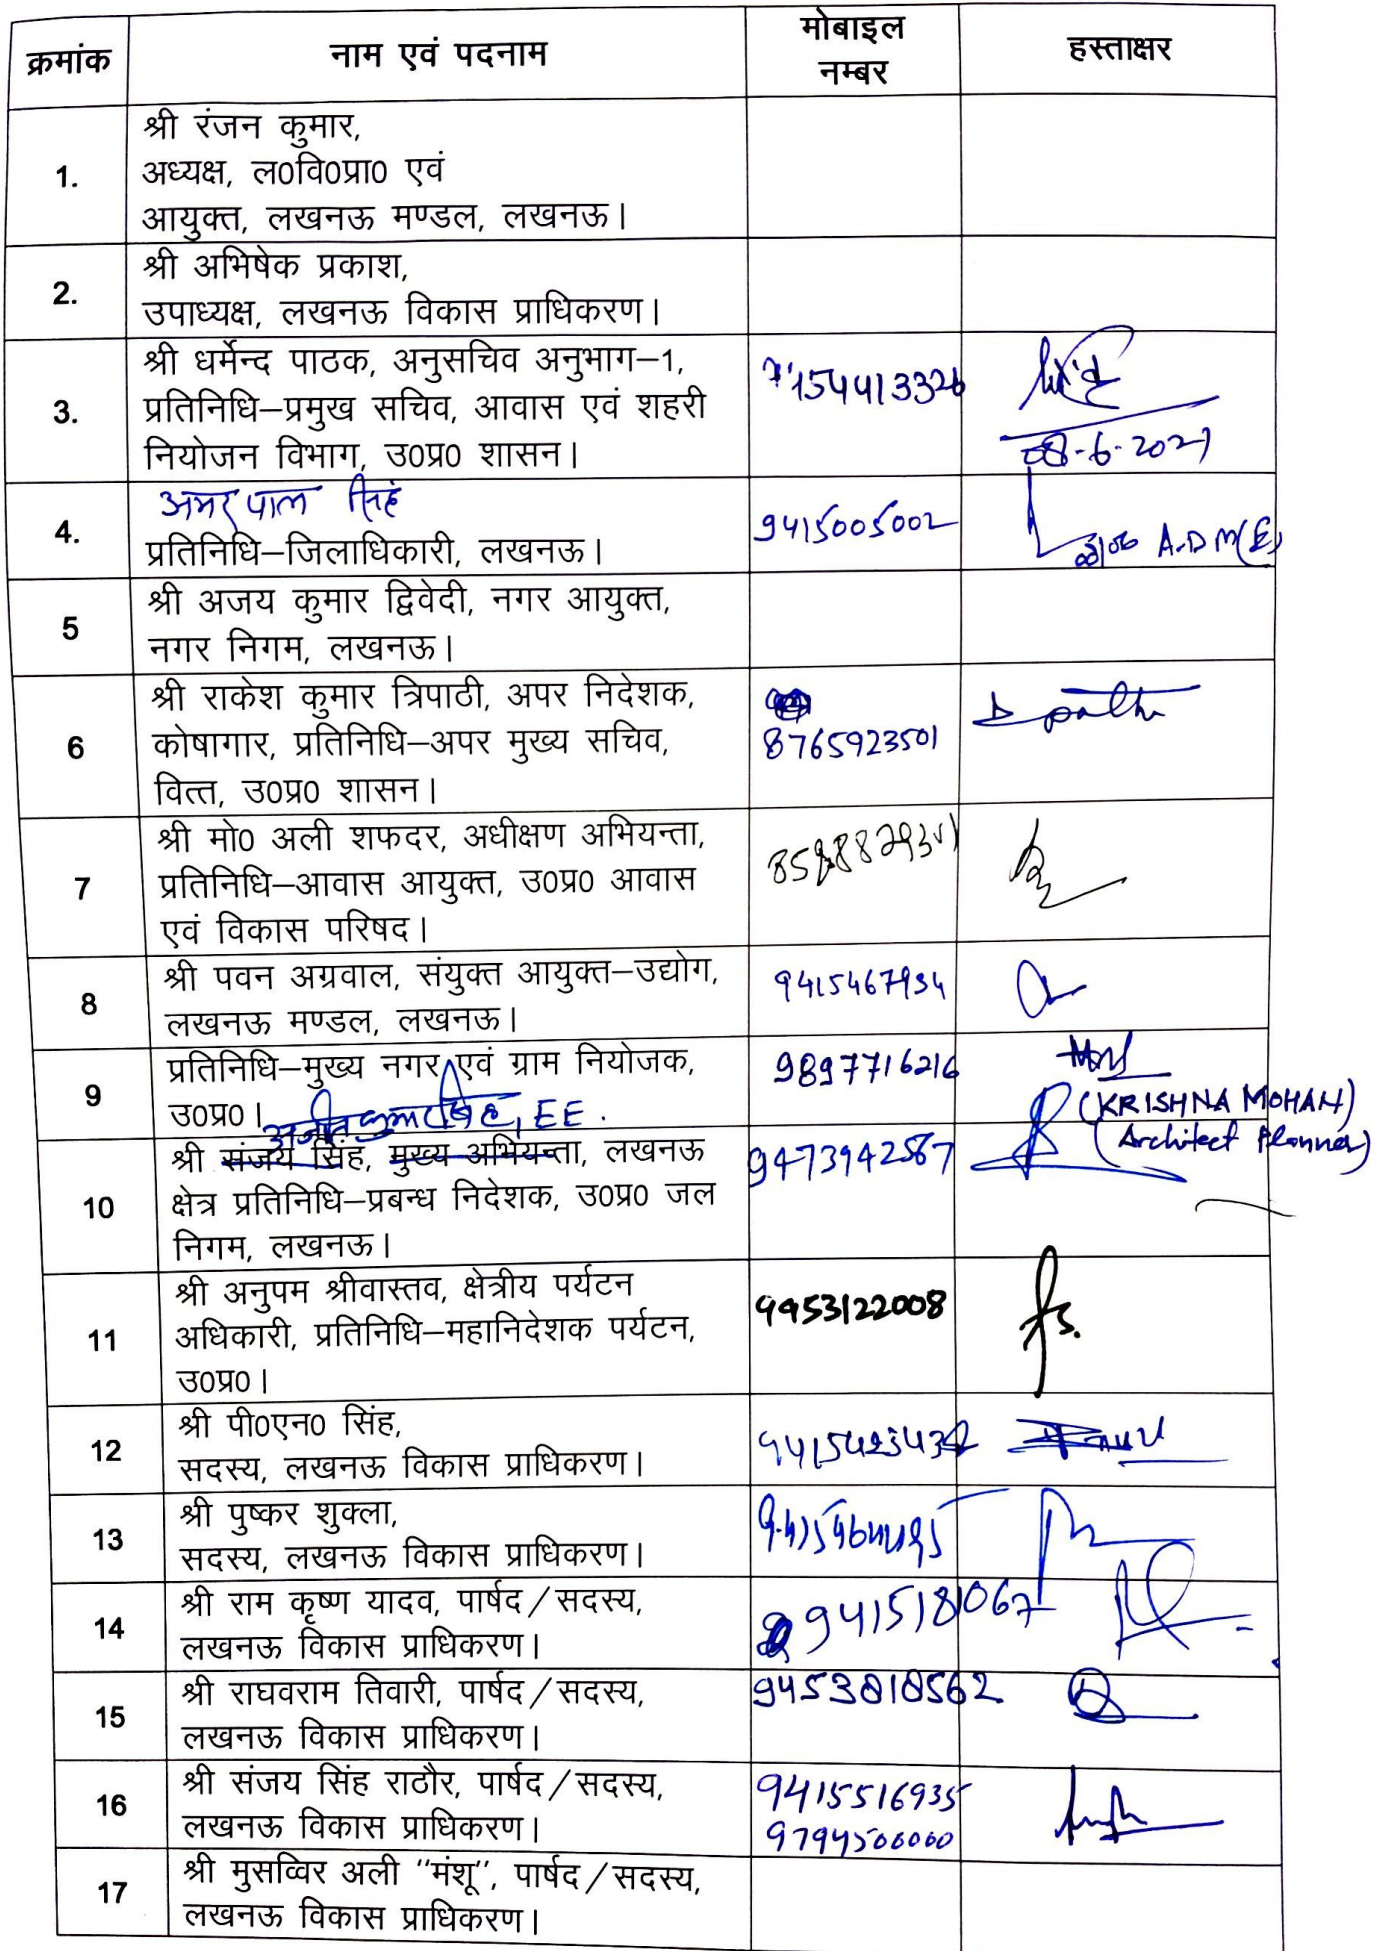 क्रमांक नाम एवं पदनाम मोबाइल नम्बर हस्ताक्षर
1. श्री रंजन कुमार,
अध्यक्ष, ल0वि0प्रा0 एवं
आयुक्त, लखनऊ मण्डल, लखनऊ।
2. श्री अभिषेक प्रकाश,
उपाध्यक्ष, लखनऊ विकास प्राधिकरण।
3. श्री धर्मेन्द पाठक, अनुसचिव अनुभाग–1,
प्रतिनिधि–प्रमुख सचिव, आवास एवं शहरी
नियोजन विभाग, उ0प्र0 शासन।
08-6-2021
4. अमर पाल सिंह
प्रतिनिधि–जिलाधिकारी, लखनऊ।
9415005002
08/06 A.D M(E)
5 श्री अजय कुमार द्विवेदी, नगर आयुक्त,
नगर निगम, लखनऊ।
6 श्री राकेश कुमार त्रिपाठी, अपर निदेशक,
कोषागार, प्रतिनिधि–अपर मुख्य सचिव,
वित्त, उ0प्र0 शासन।
8765923501
7 श्री मो0 अली शफदर, अधीक्षण अभियन्ता,
प्रतिनिधि–आवास आयुक्त, उ0प्र0 आवास
एवं विकास परिषद।
8 श्री पवन अग्रवाल, संयुक्त आयुक्त–उद्योग,
लखनऊ मण्डल, लखनऊ।
9415467934
9 प्रतिनिधि–मुख्य नगर एवं ग्राम नियोजक,
उ0प्र0।
9897716216
(KRISHNA MOHAN)
(Architect Planner)
अजीत कुमार सिंह, EE.
10 श्री संजय सिंह, मुख्य अभियन्ता, लखनऊ
क्षेत्र प्रतिनिधि–प्रबन्ध निदेशक, उ0प्र0 जल
निगम, लखनऊ।
9473942567
11 श्री अनुपम श्रीवास्तव, क्षेत्रीय पर्यटन
अधिकारी, प्रतिनिधि–महानिदेशक पर्यटन,
उ0प्र0।
9953122008
12 श्री पी0एन0 सिंह,
सदस्य, लखनऊ विकास प्राधिकरण।
13 श्री पुष्कर शुक्ला,
सदस्य, लखनऊ विकास प्राधिकरण।
14 श्री राम कृष्ण यादव, पार्षद/सदस्य,
लखनऊ विकास प्राधिकरण।
9415181067
15 श्री राघवराम तिवारी, पार्षद/सदस्य,
लखनऊ विकास प्राधिकरण।
9453818562
16 श्री संजय सिंह राठौर, पार्षद/सदस्य,
लखनऊ विकास प्राधिकरण।
9415516935
9794500000
17 श्री मुसव्विर अली "मंशू", पार्षद/सदस्य,
लखनऊ विकास प्राधिकरण।